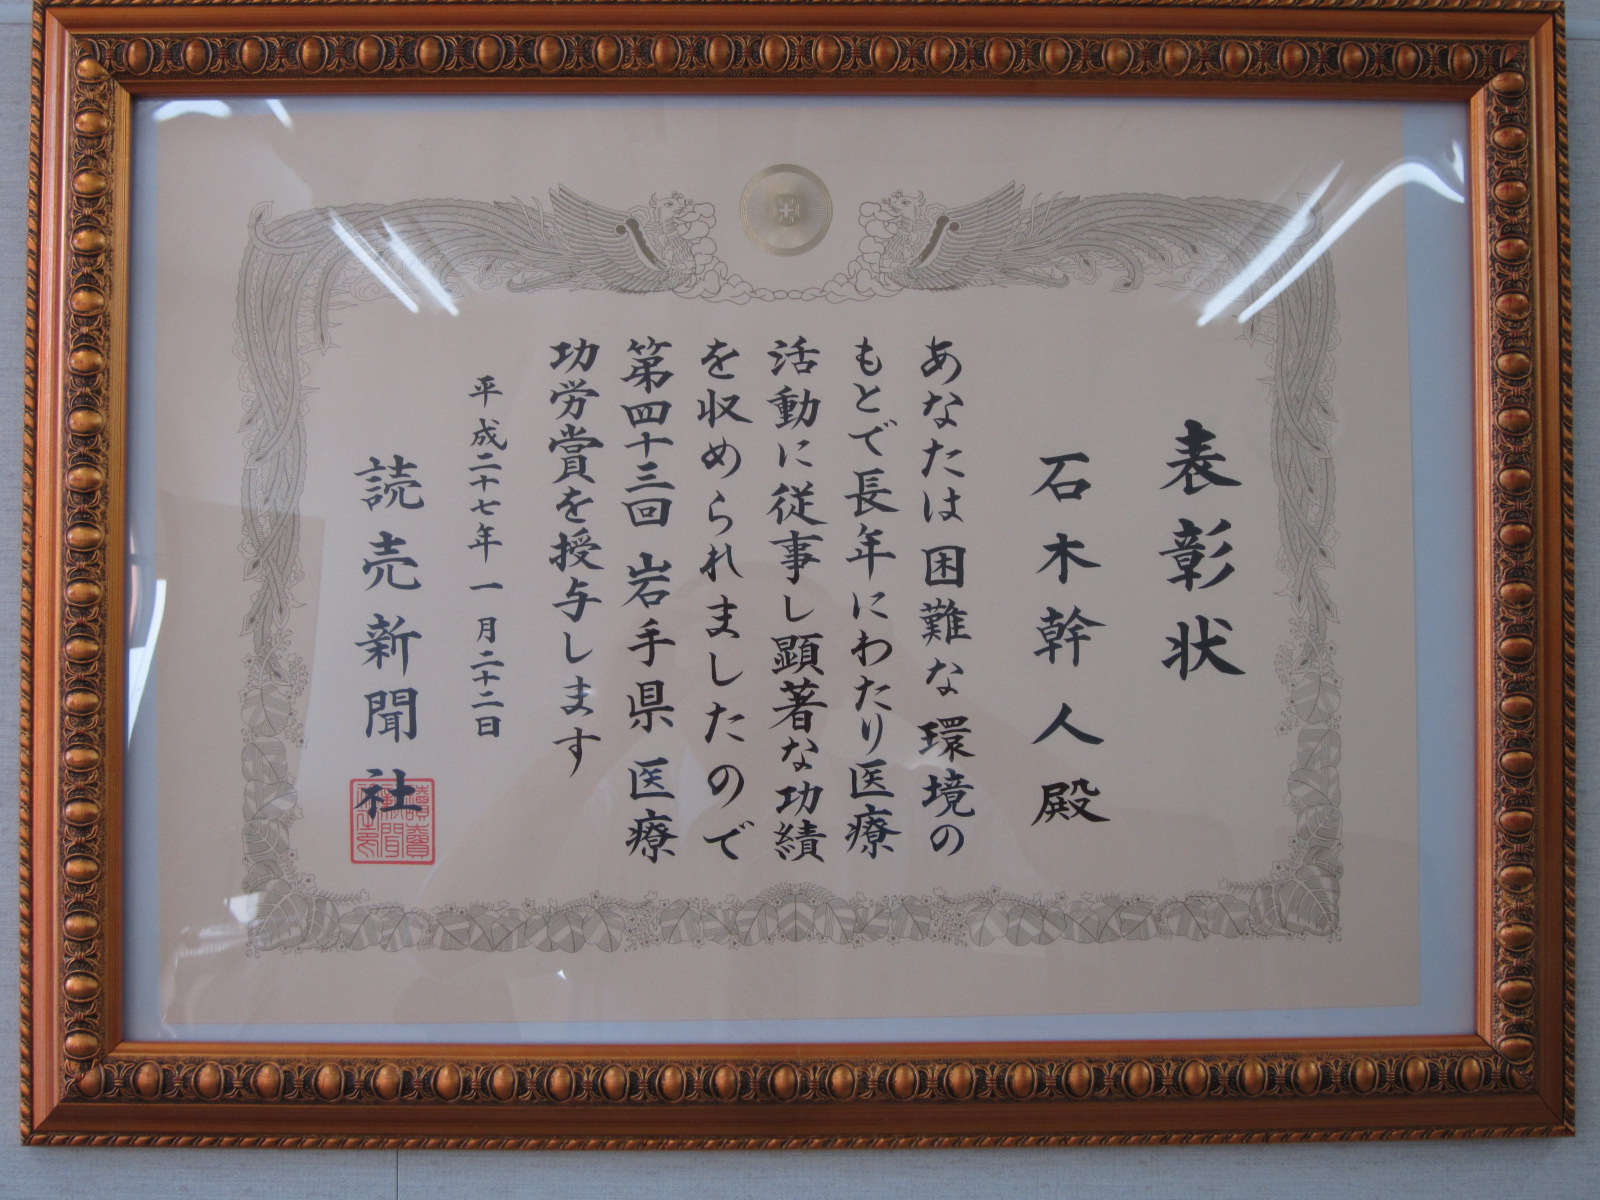 表彰状
石木幹人殿
あなたは困難な環境の
もとで長年にわたり医療
活動に従事し顕著な功績
を収められましたので
第四十三回 岩手県 医療
功労賞を授与します
平成二十七年一月二十二日
読売新聞社